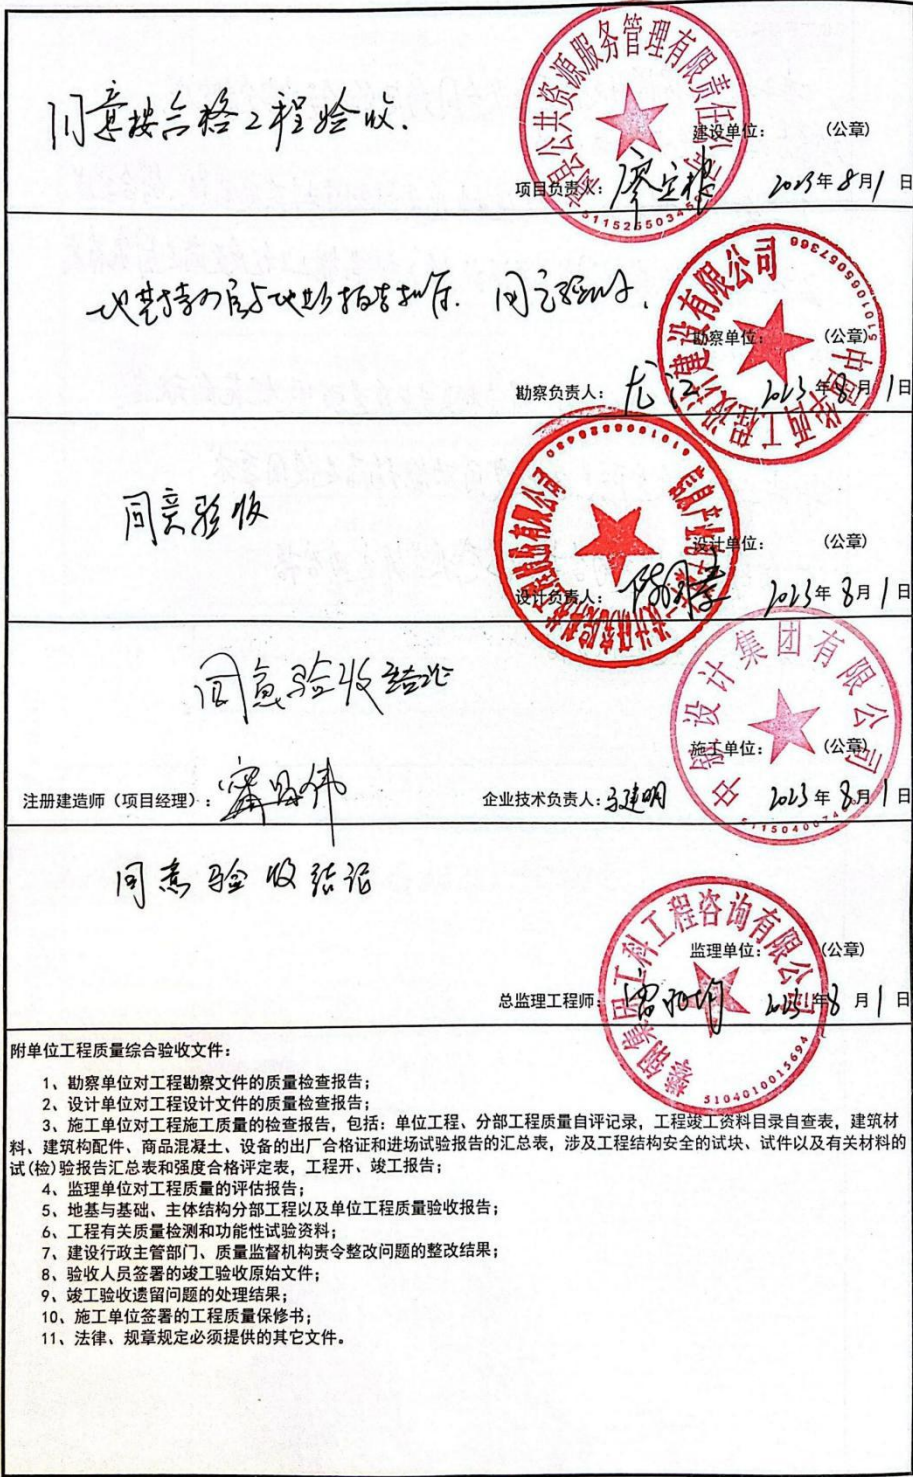 同意按合格工程验收.
县公共资源服务管理有限责任公司
建设单位： （公章）
项目负责人： 2023年8月1日
同意验收.
中国华西工程设计建设有限公司
勘察单位： （公章）
勘察负责人：龙江 2023年8月1日
同意验收
设计单位： （公章）
设计负责人： 2023年8月1日
同意验收结论
中钢设计集团有限公司
施工单位： （公章）
注册建造师（项目经理）： 企业技术负责人：马建明 2023年8月1日
同意验收结论
攀钢集团工科工程咨询有限公司
5104010015694
监理单位： （公章）
总监理工程师： 2023年8月1日
附单位工程质量综合验收文件：
1、勘察单位对工程勘察文件的质量检查报告；
2、设计单位对工程设计文件的质量检查报告；
3、施工单位对工程施工质量的检查报告，包括：单位工程、分部工程质量自评记录，工程竣工资料目录自查表，建筑材
料、建筑构配件、商品混凝土、设备的出厂合格证和进场试验报告的汇总表，涉及工程结构安全的试块、试件以及有关材料的
试(检)验报告汇总表和强度合格评定表，工程开、竣工报告；
4、监理单位对工程质量的评估报告；
5、地基与基础、主体结构分部工程以及单位工程质量验收报告；
6、工程有关质量检测和功能性试验资料；
7、建设行政主管部门、质量监督机构责令整改问题的整改结果；
8、验收人员签署的竣工验收原始文件；
9、竣工验收遗留问题的处理结果；
10、施工单位签署的工程质量保修书；
11、法律、规章规定必须提供的其它文件。